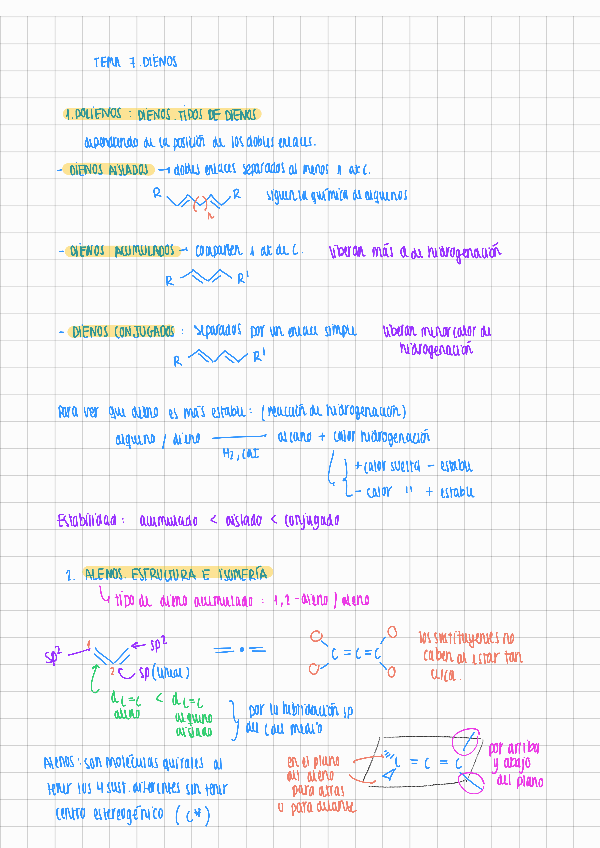 TEMA 7. DIENOS
1. POLIENOS: DIENOS. TIPOS DE DIENOS
dependiendo de la posición de los dobles enlaces.
- DIENOS AISLADOS → dobles enlaces separados al menos 1 at C.
R R siguen la química de alquenos
n
- DIENOS ACUMULADOS → comparten 1 at de C. liberan más Q de hidrogenación
R R'
- DIENOS CONJUGADOS: separados por un enlace simple liberan menor calor de
hidrogenación
R R'
Para ver que dieno es más estable: (reacción de hidrogenación)
alqueno / dieno → alcano + calor hidrogenación
H2, cat
+ calor suelta - estable
- calor " + estable
Estabilidad: acumulado < aislado < conjugado
2. ALENOS. ESTRUCTURA E ISOMERÍA
tipo de dieno acumulado: 1,2-dieno / aleno
sp² 1 sp²
2 sp (lineal)
= • =
C = C = C
los sustituyentes no
caben al estar tan
cerca.
dC=C < dC=C
aleno alqueno
aislado
por la hibridación sp
del C del medio
Alenos: son moléculas quirales al
tener los 4 sust. diferentes sin tener
centro estereogénico (C*)
en el plano
del aleno
para atras
o para delante
C = C = C
por arriba
y abajo
del plano